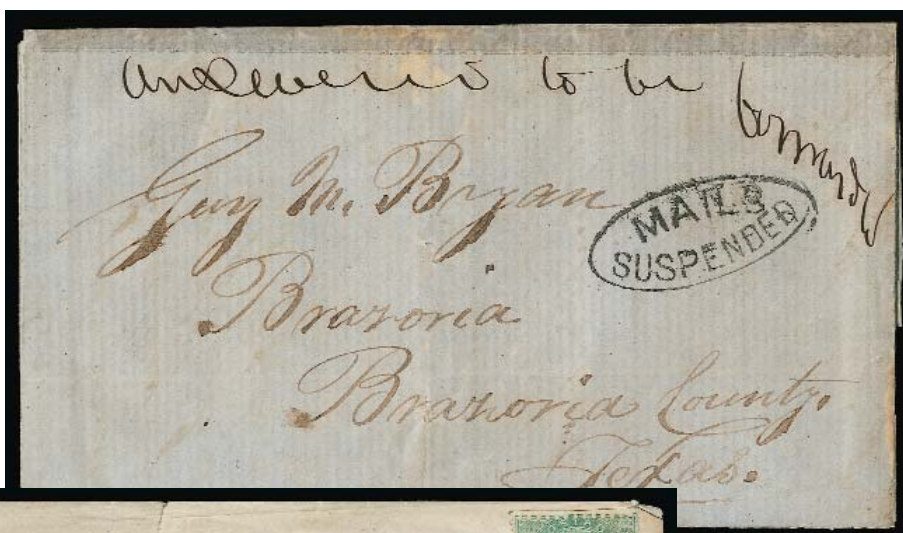 Answered to be forwarded
Guy M. Bryan
MAILS
SUSPENDED
Brazoria
Brazoria County.
Texas.